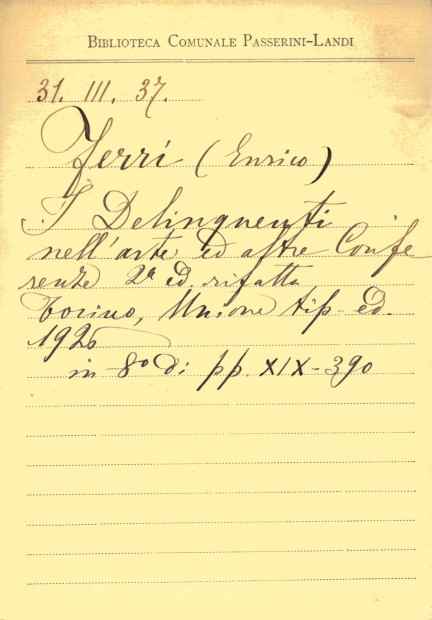 BIBLIOTECA COMUNALE PASSERINI-LANDI
31. III. 37.
Ferri (Enrico)
I Delinquenti
nell'arte ed altre Confe
renze 2ª ed. rifatta
Torino, Unione tip-ed.
1926
in-8º di pp. XIX-390